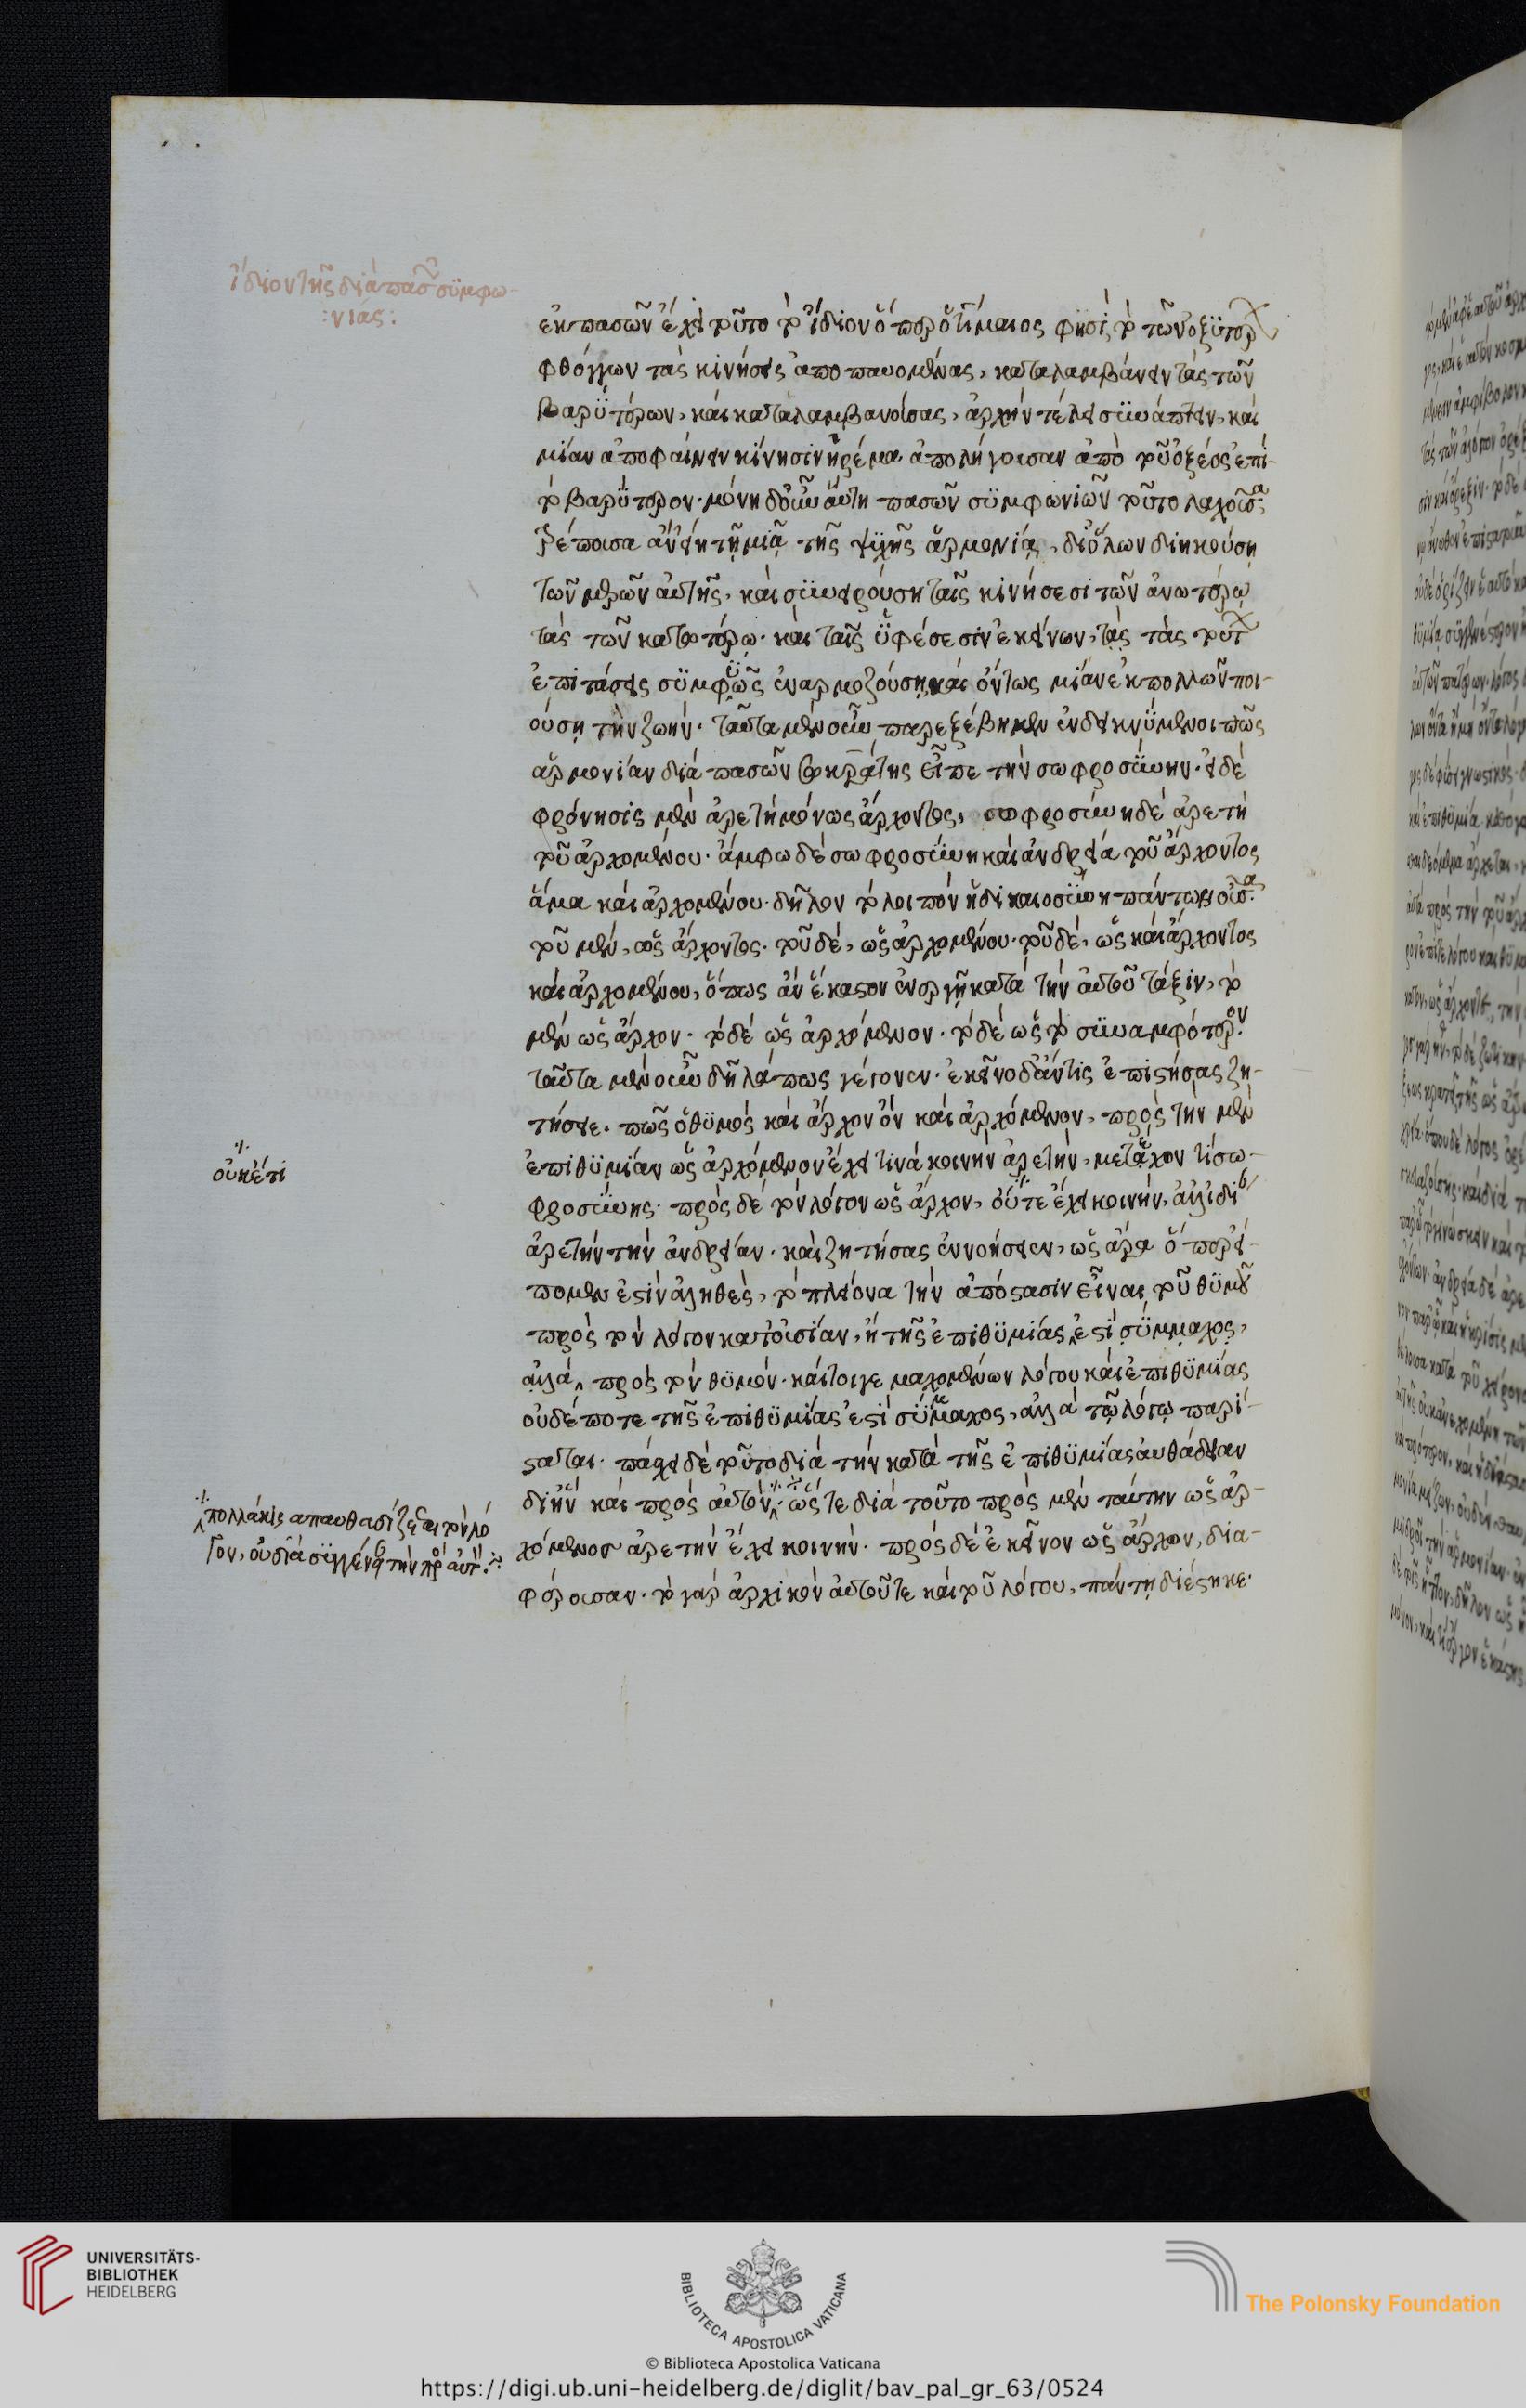 ἴδιον τῆς διὰ πασῶν συμφω-
νίας:
ἐκ πασῶν ἔχει τοῦτο τὸ ἴδιον ὅπερ ὁ τίμαιος φησὶ, τὸ τῶν ὀξυτέρων
φθόγγων τὰς κινήσεις ἀποπαυομένας, καταλαμβάνειν τὰς τῶν
βαρυτέρων, καὶ καταλαμβανούσας, ἀρχὴν τέλει συνάπτειν, καὶ
μίαν ἀποφαίνειν κίνησιν ἠρέμα ἀπολήγουσαν ἀπὸ τοῦ ὀξέος ἐπὶ
τὸ βαρύτερον. μόνη δ' οὖν αὕτη πασῶν συμφωνιῶν τοῦτο λαχοῦσα.
πρέπουσα ἂν εἴη τῇ μιᾷ τῆς ψυχῆς ἁρμονίᾳ, δι' ὅλων διηκούσῃ
τῶν μερῶν αὐτῆς, καὶ συνειρούσῃ ταῖς κινήσεσι τῶν ἀνωτέρω
τὰς τῶν κατωτέρω. καὶ ταῖς ὑφέσεσιν ἐκείνων, τὰς τούτων
ἐπιτάσεις συμφυῶς ἐναρμοζούσῃ, καὶ ὄντως μίαν ἐκ πολλῶν ποι-
ούσῃ τὴν ζωήν. ταῦτα μὲν οὖν παρεξέβημεν ἐνδεικνύμενοι πῶς
ἁρμονίαν διὰ πασῶν σωκράτης εἶπε τὴν σωφροσύνην. εἰ δὲ
φρόνησις μὲν ἀρετὴ μόνως ἄρχοντος, σωφροσύνη δὲ ἀρετὴ
τοῦ ἀρχομένου. ἄμφω δὲ σωφροσύνη καὶ ἀνδρεία τοῦ ἄρχοντος
ἅμα καὶ ἀρχομένου. δῆλον τὸ λοιπὸν ἡ δικαιοσύνη πάντων οὖσα.
τοῦ μὲν, ὡς ἄρχοντος. τοῦ δὲ, ὡς ἀρχομένου. τοῦ δὲ, ὡς καὶ ἄρχοντος
καὶ ἀρχομένου, ὅπως ἂν ἕκαστον ἐνεργῇ κατὰ τὴν αὐτοῦ τάξιν, τὸ
μὲν ὡς ἄρχον. τὸ δὲ ὡς ἀρχόμενον. τὸ δὲ ὡς τὸ συναμφότερον.
ταῦτα μὲν οὖν δῆλά πως γέγονεν. ἐκεῖνο δ' ἄν τις ἐπιστήσας ζη-
τήσειε. πῶς ὁ θυμὸς καὶ ἄρχον ὂν καὶ ἀρχόμενον, πρὸς τὴν μὲν
ἐπιθυμίαν ὡς ἀρχόμενον ἔχει τινὰ κοινὴν ἀρετὴν, μετάσχον τι σω-
φροσύνης. πρὸς δὲ τὸν λόγον ὡς ἄρχον, οὔτε ἔχει κοινὴν, ἀλλ' ἰδίαν
ἀρετὴν τὴν ἀνδρείαν. καὶ ζητήσας ἐννοήσειεν, ὡς ἄρα ὅπερ εἴ-
πομεν ἐστὶν ἀληθὲς, τὸ πλείονα τὴν ἀπόστασιν εἶναι τοῦ θυμοῦ
πρὸς τὸν λόγον κατ' οὐσίαν, ἢ τῆς ἐπιθυμίας ἐστὶ σύμμαχος,
ἀλλὰ πρὸς τὸν θυμόν. καίτοιγε μαχομένων λόγου καὶ ἐπιθυμίας
οὐδέποτε τῆς ἐπιθυμίας ἐστὶ σύμμαχος, ἀλλὰ τῷ λόγῳ παρί-
σταται. πάσχει δὲ τοῦτο διὰ τὴν κατὰ τῆς ἐπιθυμίας αὐθάδειαν
δι' ἣν καὶ πρὸς αὐτὸν, ὥστε διὰ τοῦτο πρὸς μὲν ταύτην ὡς ἀρ-
χόμενον ἀρετὴν ἔχει κοινήν. πρὸς δὲ ἐκεῖνον ὡς ἄρχον, δια-
φέρουσαν. τὸ γὰρ ἀρχικὸν αὐτοῦ τε καὶ τοῦ λόγου, πάντῃ διέστηκε.
οὐκέτι
πολλάκις απαυθαδίζεται τὸν λό
γον, οὐ διὰ συγγένειαν τὴν πρὸς αὐτήν:
UNIVERSITÄTS-
BIBLIOTHEK
HEIDELBERG
BIBLIOTECA APOSTOLICA VATICANA
The Polonsky Foundation
© Biblioteca Apostolica Vaticana
https://digi.ub.uni-heidelberg.de/diglit/bav_pal_gr_63/0524